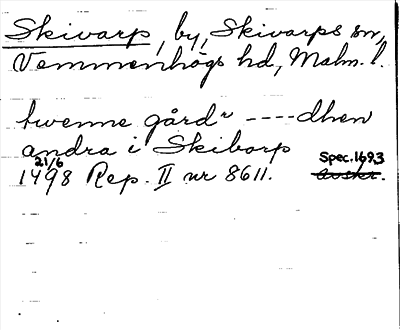 Skivarp, by, Skivarps sn,
Vemmenhögs hd, Malm. l.
twenne gårdr ----dhen
andra i Skiborp
21/6
1498 Rep. II nr 8611.
Spec. 1693
Avskr.